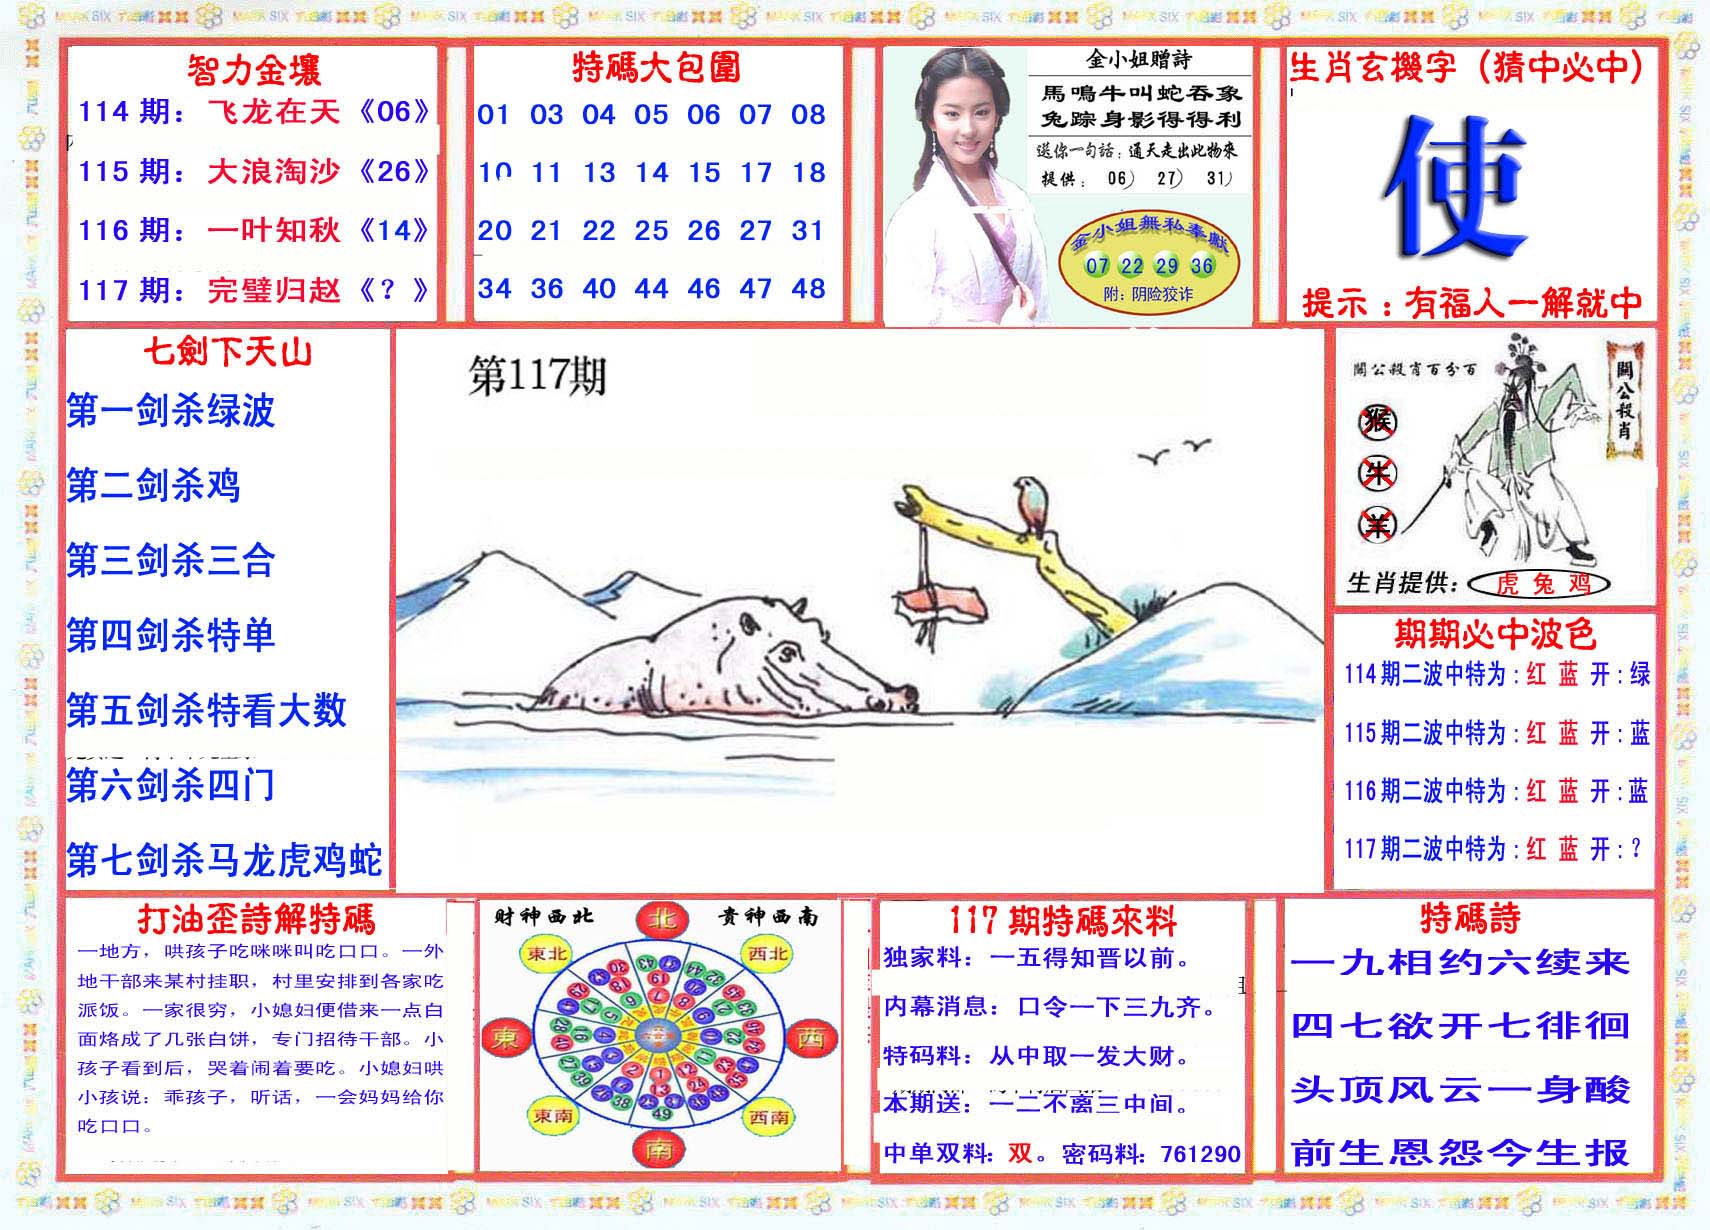 智力金壤
114 期： 飞龙在天《06》
115 期： 大浪淘沙《26》
116 期： 一叶知秋《14》
117 期： 完璧归赵《？》
特碼大包圍
01 03 04 05 06 07 08
10 11 13 14 15 17 18
20 21 22 25 26 27 31
34 36 40 44 46 47 48
金小姐贈詩
馬鳴牛叫蛇吞象
兔踪身影得得利
送你一句話：通天走出此物來
提供： 06） 27） 31）
金小姐無私奉獻
07 22 29 36
附：阴险狡诈
生肖玄機字（猜中必中）
使
提示：有福人一解就中
七劍下天山
第一剑杀绿波
第二剑杀鸡
第三剑杀三合
第四剑杀特单
第五剑杀特看大数
第六剑杀四门
第七剑杀马龙虎鸡蛇
第117期
關公殺肖百分百
關公殺肖
猴
牛
羊
生肖提供：虎 兔 鸡
期期必中波色
114期二波中特为：红 蓝 开：绿
115期二波中特为：红 蓝 开：蓝
116期二波中特为：红 蓝 开：蓝
117期二波中特为：红 蓝 开：？
打油歪詩解特碼
一地方，哄孩子吃咪咪叫吃口口。一外
地干部来某村挂职，村里安排到各家吃
派饭。一家很穷，小媳妇便借来一点白
面烙成了几张白饼，专门招待干部。小
孩子看到后，哭着闹着要吃。小媳妇哄
小孩说：乖孩子，听话，一会妈妈给你
吃口口。
财神西北
貴神西南
北
東北
西北
東
西
東南
西南
南
117 期特碼來料
独家料：一五得知晋以前。
内幕消息：口令一下三九齐。
特码料：从中取一发大财。
本期送：一二不离三中间。
中单双料：双。密码料：761290
特碼詩
一九相约六续来
四七欲开七徘徊
头顶风云一身酸
前生恩怨今生报